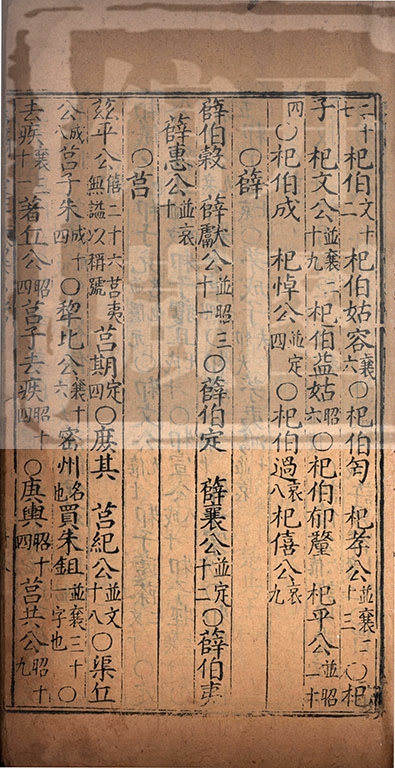 二十七 杞伯文十二 杞伯姑容襄六〇杞伯匄 杞孝公並襄二十三〇杞
子 杞文公並襄二十九 杞伯益姑昭六〇杞伯郁釐 杞平公並昭二十
四〇杞伯成 杞悼公並定四〇杞伯過哀八杞僖公哀九
〇薛
薛伯穀 薛獻公並昭三十一〇薛伯定 薛襄公並定十二〇薛伯夷
薛惠公並哀十
〇莒
玆平公僖二十六莒夷無謚以稱號 莒期定四〇庶其 莒紀公並文十八〇渠丘
公成八莒子朱成十四〇犂比公襄十六密州名也買朱鉏並襄三十一字也〇
去疾襄三十一著丘公昭十四莒子去疾昭十四〇庚輿昭十四莒共公昭十九